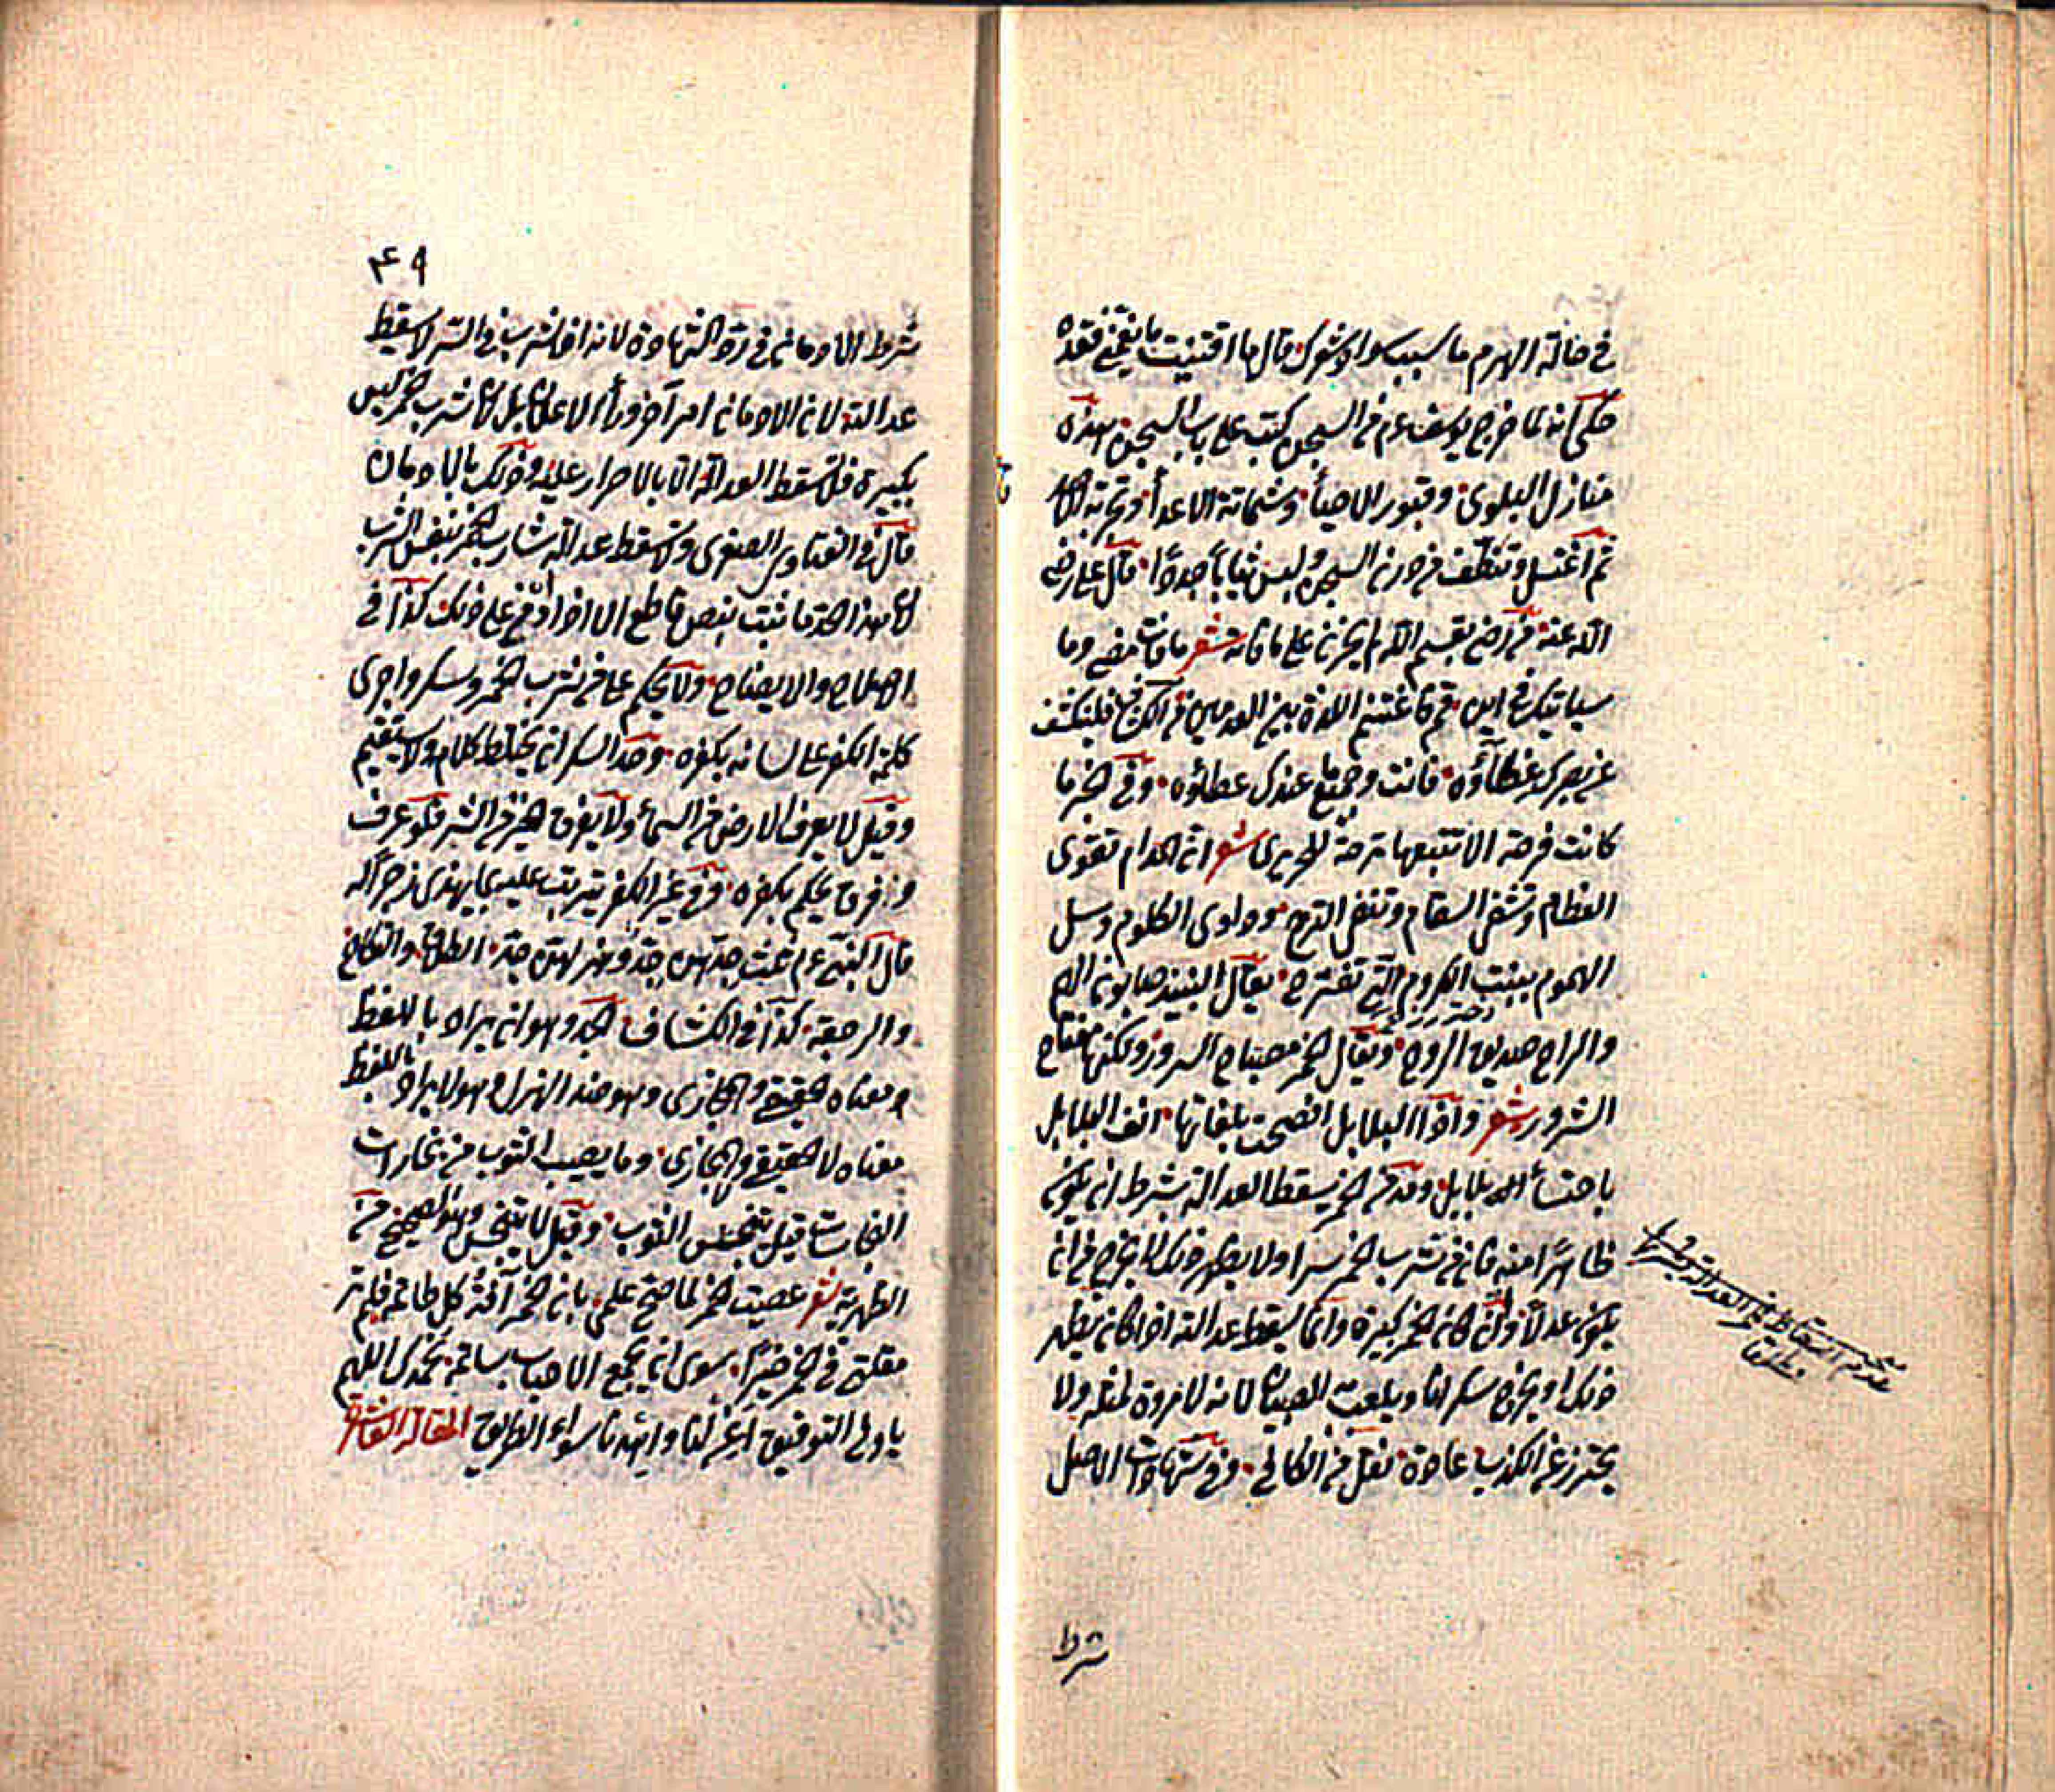 في حالة الهرم ما سبب سواد شعرك قال ما اقتنيت ما يغمني فقده
حكى انه لما خرج يوسف عم من السجن كتب على باب السجن هذه
منازل البلوى وقبور الاحياء وشماتة الاعداء وتجربة
ثم اغتسل وتنظف من درن السجن ولبس ثيابا جددا قال علي رضي
الله عنه من رضي بقسم الله لم يحزن على ما فاته شعر ما فات مضى وما
سيأتيك فاين قم فاغتنم اللذة بين العدمين فليكشف
عن بصرك غطاؤه فانت وجميع ما عندك عطاؤه وفي الخبر ما
كانت فرحة الا تتبعها ترحة للحريري شعر ان المدام تقوي
العظام وتشفي السقام وتنفي الترح وداوي الكلوم وسل
الهموم ببنت الكروم التي تقترح يقال النبيذ صابون الهم
دختر رز
والراح صديق الروح ويقال الخمر مصباح السرور ولكنها مفتاح
الشرور شعر واذا البلابل افصحت بلغاتها انف البلابل
باحتساء بلابل ومدمن الخمر يسقط العدالة بشرط ان يكون
ظاهرا منه فان من شرب الخمر سرا ولا يظهر ذلك لا يخرج من ان
يكون عدلا وان كان الخمر كبيرة وانما يسقط عدالته اذا كان يظهر
ذلك او يخرج سكرانا ويلعب الصبيان لانه لا مروة لمثله ولا
يحترز عن الكذب عادة نقل من الكافي وفي شهادات الاصل
شرط
٤٩
شرط الادمان في رد الشهادة لانه اذا شرب في السر لا يسقط
عدالته لان الادمان امر آخر وراء الاعلان بل لان شرب الخمر ليس
بكبيرة فلا يسقط العدالة الا بالاصرار عليه وذلك بالادمان
قال في الفتاوى الصغرى ولا يسقط عدالة شارب الخمر بنفس الشرب
لان هذا الحد ما ثبت بنص قاطع الا اذا داوم على ذلك كذا في
الاصلاح والايضاح ولا يحكم على من شرب الخمر وسكر واجرى
كلمة الكفر على لسانه بكفره وحد السكران يختلط كلامه ولا يستقيم
وقيل لا يعرف الارض من السماء ولا يفرق الخير من الشر فلو عرف
وفرق يحكم بكفره وفي غير الكفر يترتب عليه ما يهذي زجرا له
قال النبي عم ثلث جدهن جد وهزلهن جد الطلاق والنكاح
والرجعة كذا في الكشاف الجد وهو ان يراد باللفظ
معناه الحقيقي والمجازي وهو ضد الهزل وهو لا يراد باللفظ
معناه لا الحقيقي والمجازي وما يصيب الثوب من بخارات
النجاسات قيل يتنجس الثوب وقيل لا يتنجس وهو الصحيح من
الظهيرية شعر عصيت الخمر لما صح علمي بان الخمر آفة كل طاعة فلم تر
مقلتي في الخمر خيرا سوى ان يجمع الاحباب ساعة نحمدك اللهم
يا ولي التوفيق اغفر لنا واهدنا سواء الطريق المقالة العاشرة